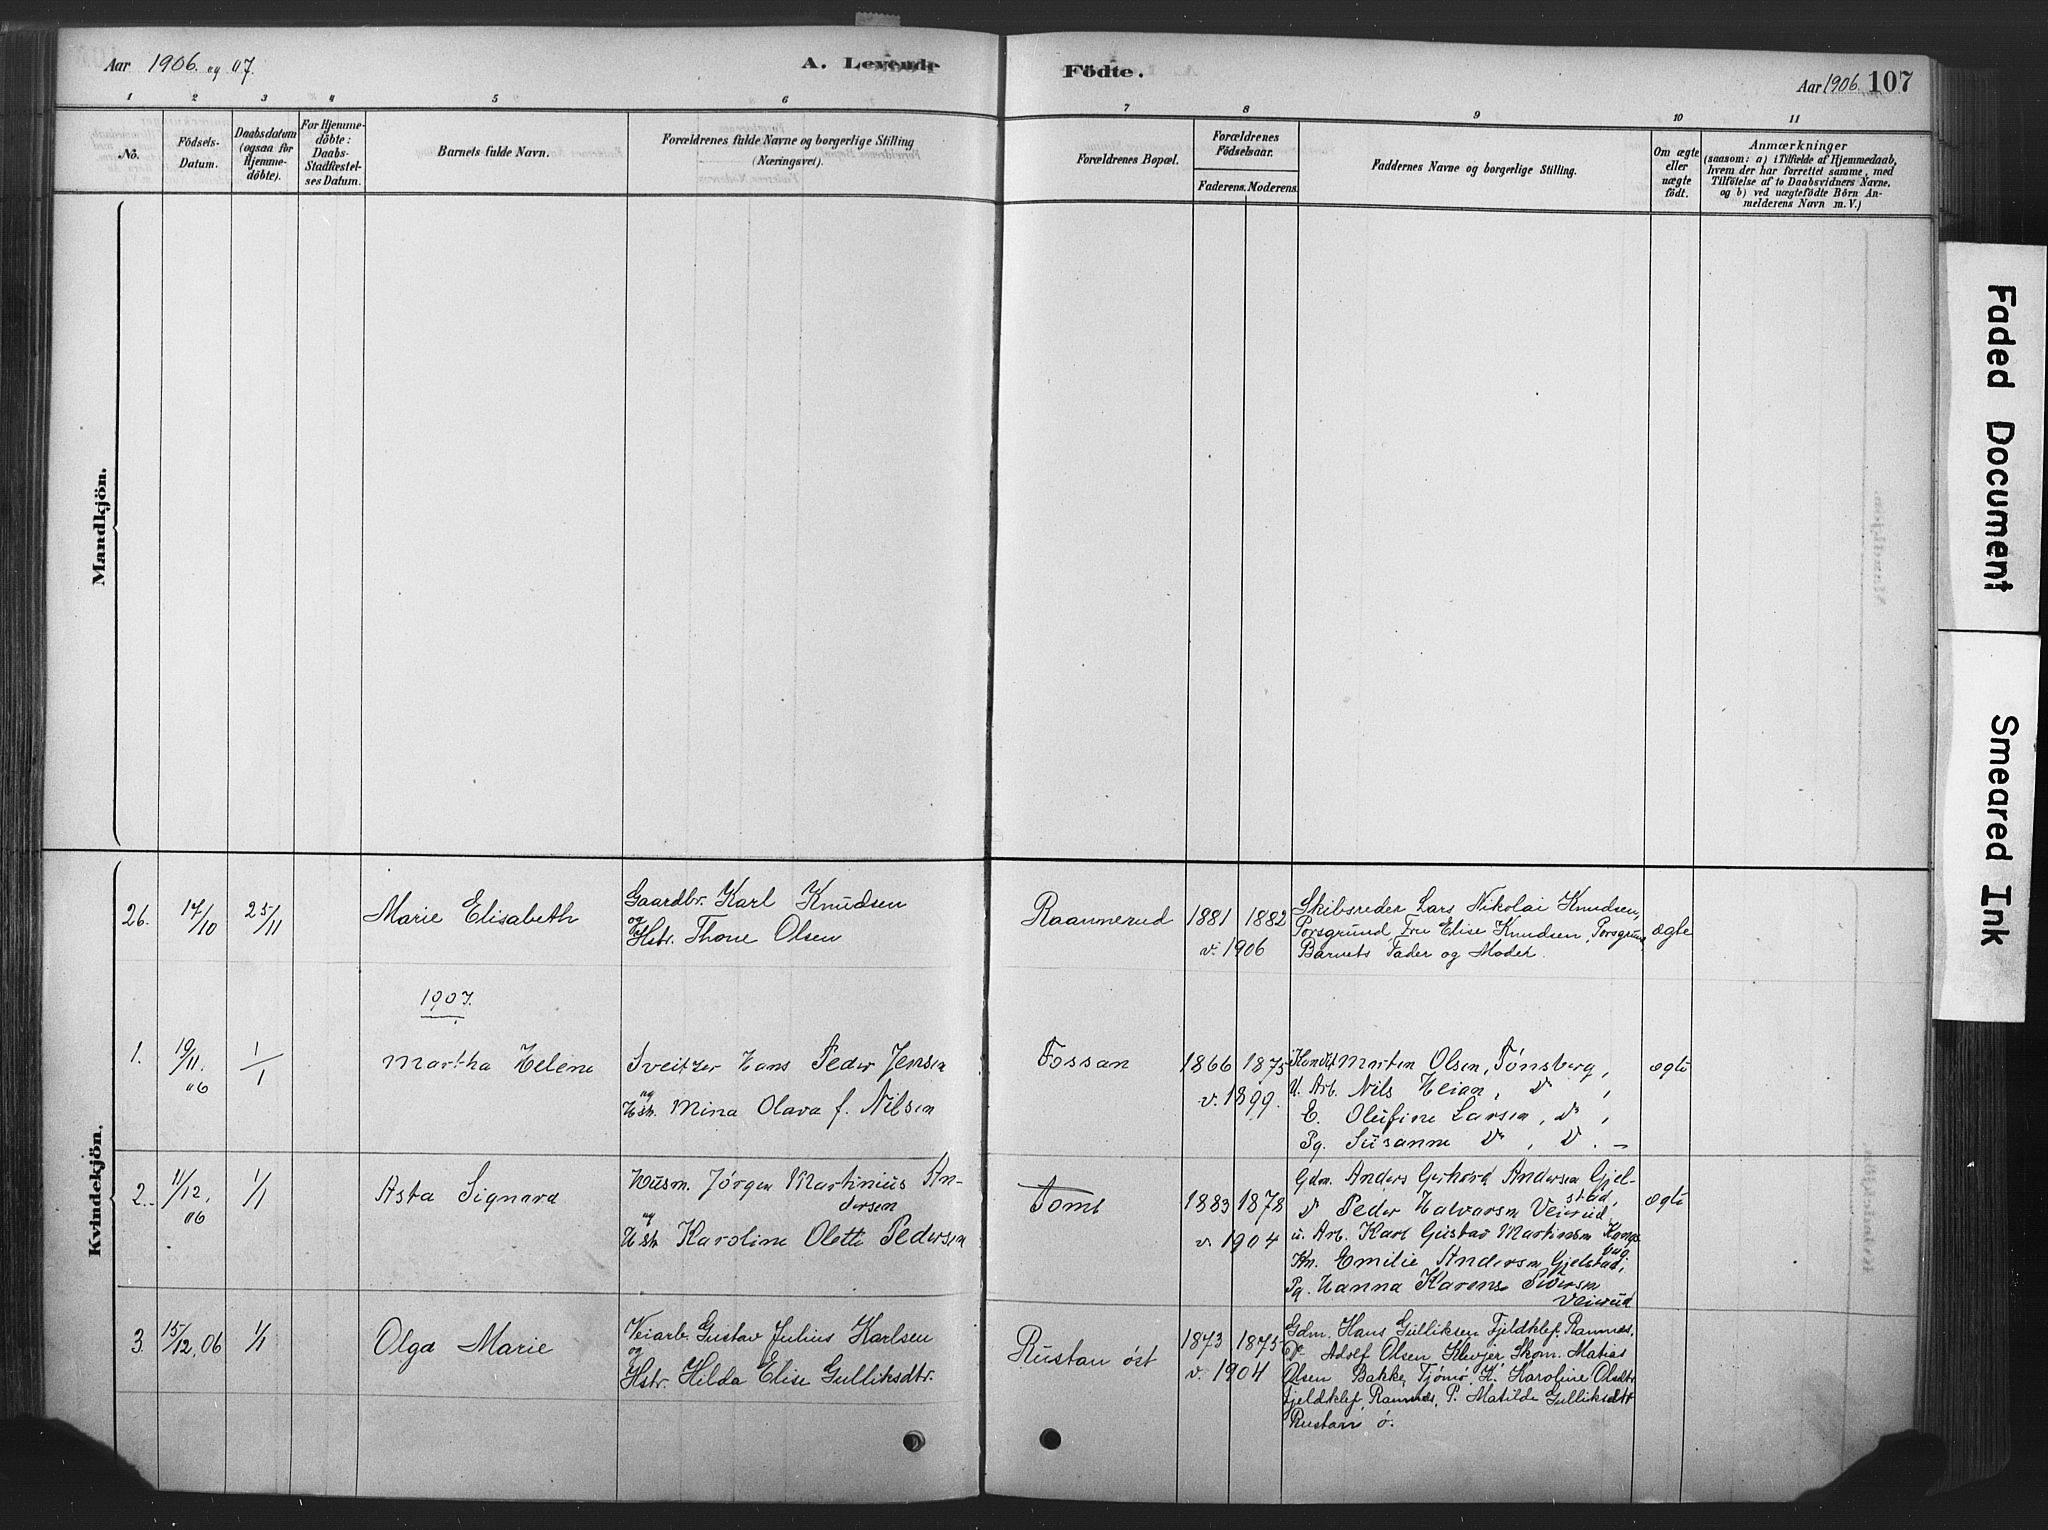 Aar 1906 og 07.
A. Levende
Födte.
Aar 1906. 107
1 2 3 4 5 6 7 8 9 10 11
No.
Födsels-
Datum.
Daabsdatum
(ogsaa for
Hjemme-
döbte).
For Hjemme-
döbte:
Daabs-
Stadfæstel-
ses Datum.
Barnets fulde Navn.
Forældrenes fulde Navne og borgerlige Stilling
(Næringsvei).
Forældrenes Bopæl.
Forældrenes
Födselsaar.
Faderens. Moderens.
Faddernes Navne og borgerlige Stilling.
Om ægte
eller
uægte
födt.
Anmærkninger
(saasom: a) i Tilfælde af Hjemmedaab,
hvem der har forrettet samme, med
Tilföielse af to Daabsvidners Navne.
og b) ved uægtefödte Börn An-
melderens Navn m. V.)
Mandkjön.
Kvindekjön.
26. 17/10 25/11 Marie Elisabeth
Gaardbr. Karl Knudsen
og
Hstr. Thone Olsen
Raannerud
1881 1882
v. 1906
Skibsreder Lars Nikolai Knudsen,
Porsgrund Fru Elise Knudsen, Porsgrund
Barnets Fader og Moder.
ægte
1907.
1. 19/11. 06 1/1 Martha Helene
Sveitzer Hans Peder Jensen
og
Hstr. Mina Olava f. Nilsen
Fossan
1866 1875
v. 1899.
Morten Olsen, Tønsberg,
U. Arb. Nils Heian, Do,
E. Olufine Larsen, Do,
Pg. Susanne Do, Do. –
ægte
2. 11/12, 06 1/1 Asta Signora
Husm. Jørgen Martinius An-
dersen
og
Hstr. Karoline Olette Pedersen
Tomt
1883 1878
v. 1904
Gdm. Anders Gerhard Andersen Gjel-
stad,
Do Peder Halvorsen Veierud,
u. Arb. Karl Gustav Martinsen
Kn. Emilie Andersen Gjelstad,
Pg. Hanna Karense Sivertsen
Veierud
ægte
3. 15/12, 06 1/1 Olga Marie
Veiarb. Gustav Julius Karlsen
og
Hstr. Hilda Elise Gulliksdtr.
Rustan øst
1873 1875
v. 1904
Gdm. Hans Gulliksen Fjeldklef, Ramnes,
Do Adolf Olsen Klevjer, Skom. Matias
Olsen Bakke, Tjømø, K. Karoline Olsdtr
Fjeldklef, Ramnes, P. Matilde Gulliksdtr
Rustan ø.
Faded Document
Smeared Ink